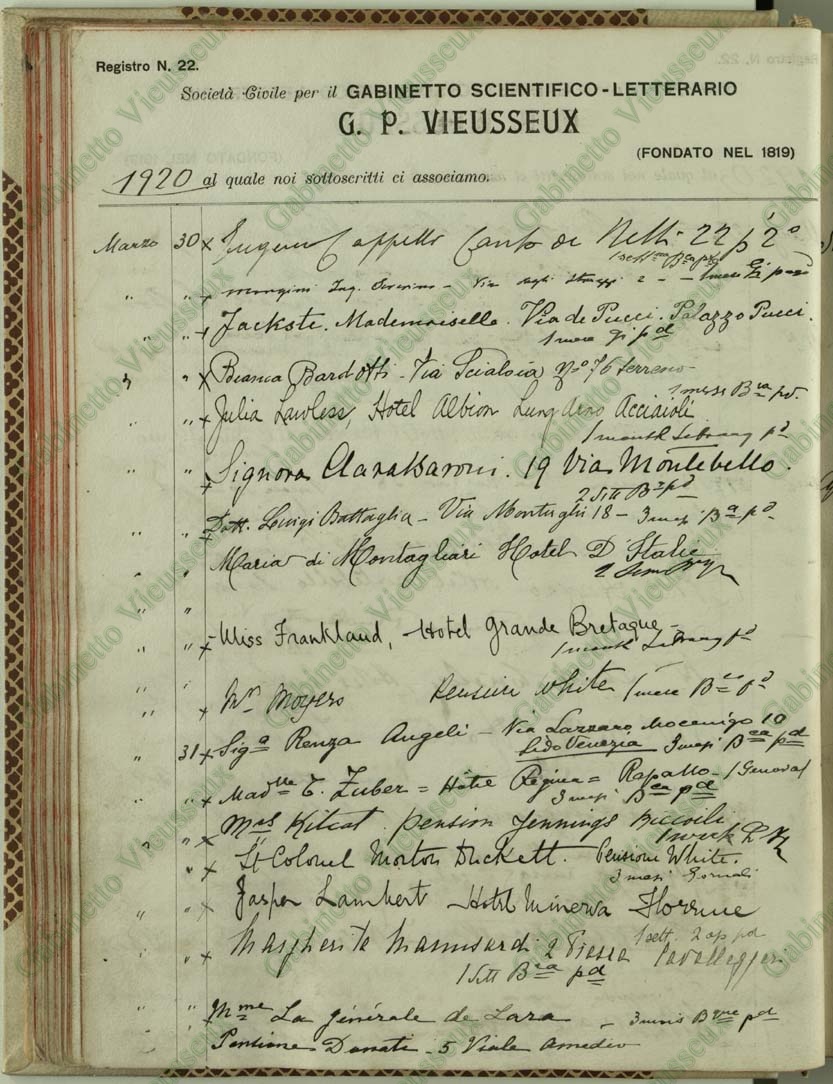 Registro N. 22.
Società Civile per il GABINETTO SCIENTIFICO-LETTERARIO
G. P. VIEUSSEUX
(FONDATO NEL 1819)
1920 al quale noi sottoscritti ci associamo.
Marzo 30 x Cappelli Canto de Nelli 22 p. 2°
" " x Ing. Severino - Via degli Strozzi 2 - 1 mese
" " x Jackste. Mademoiselle. Via de Pucci. Palazzo Pucci.
1 mese pd
" " x Bianca Bardotti - Via Scialoia No 76 terreno
1 mese Bca pd.
" " x Julia Lawless, Hotel Albion Lung'Arno Acciaioli
1 month Library pd
" " x Signora Clara Baroni. 19 Via Montebello.
2 Sett Bca pd
" " x Dott. Luigi Battaglia - Via Montughi 18 - 3 mesi Bca pd
" " Maria di Montagliari Hotel D'Italie
" "
" " x Miss Frankland, Hotel Grande Bretagne -
1 month Library pd
" "
" " x Mrs Moyers Pension White 1 mese Bca pd
" 31 x Siga Renza Angeli - Via Lazzaro Mocenigo 10
Lido Venezia 3 mesi Bca pd
" " x Madlle E. Zuber = Hôtel Regina = Rapallo - (Genova)
3 mesi Bca pd
" " x Mrs Kitcat. pension Jennings Riccioli
1 week
" " x Lt Colonel Morton Duckett. Pensione White.
3 mesi Giornali
" " x Jasper Lambert Hotel Minerva Florence
" " x Margherita 2 Piazza Cavalleggeri
1 sett pd
1 Sett Bca pd
" " x Mme La générale de Lara - 3 mois Bque pd
Pensione Donati - 5 Viale Amedeo
Gabinetto Vieusseux